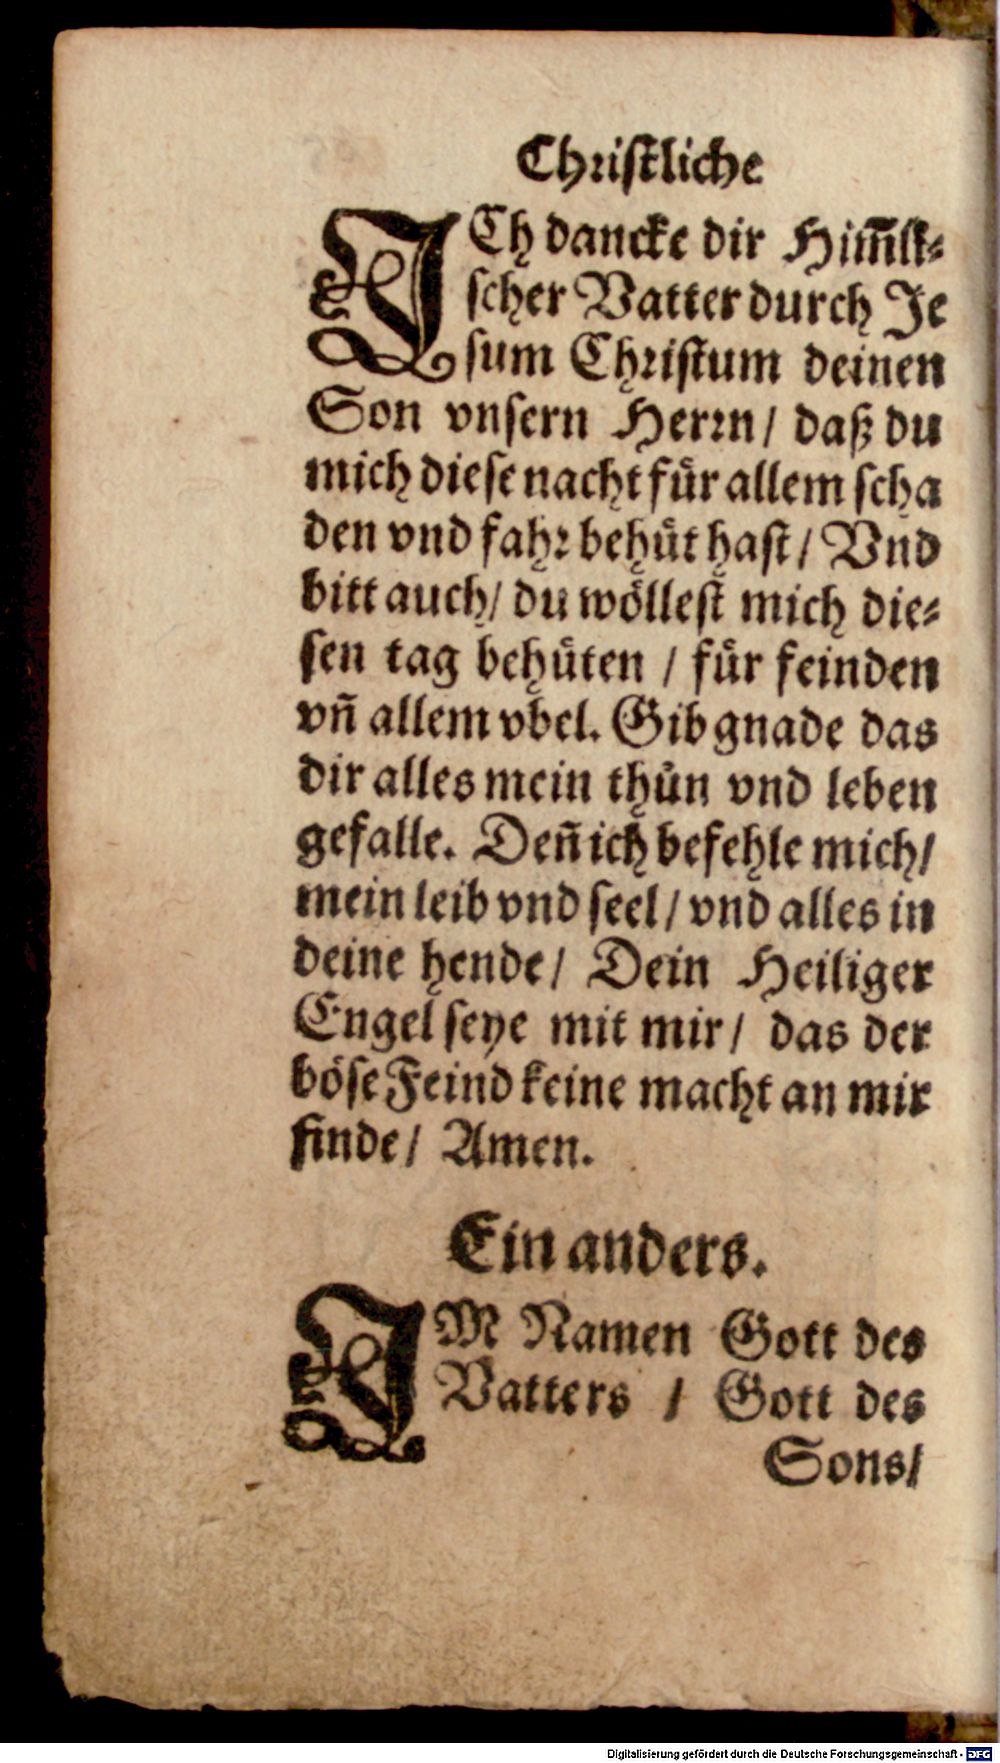 Christliche
ICh dancke dir Him̃li⸗
scher Vatter durch Je
sum Christum deinen
Son vnsern Herrn / daß du
mich diese nacht für allem scha
den vnd fahr behüt hast / Vnd
bitt auch / du wöllest mich die⸗
sen tag behüten / für feinden
vñ allem vbel. Gib gnade das
dir alles mein thůn vnd leben
gefalle. Deñ ich befehle mich /
mein leib vnd seel / vnd alles in
deine hende / Dein Heiliger
Engel seye mit mir / das der
böse Feind keine macht an mir
finde / Amen.
Ein anders.
IM Namen Gott des
Vatters / Gott des
Sons /
Digitalisierung gefördert durch die Deutsche Forschungsgemeinschaft - DFG